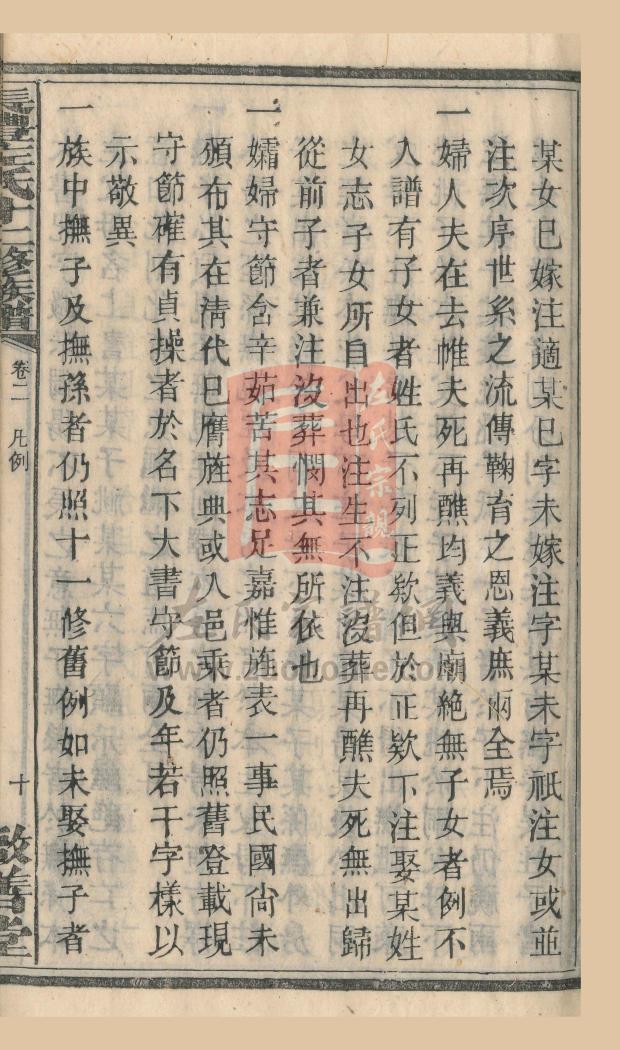 某女已嫁注適某已字未嫁注字某未字祇注女或並
注次序世系之流傳鞠育之恩義庶兩全焉
一婦人夫在去帷夫死再醮均義與廟絶無子女者例不
入譜有子女者姓氏不列正欵但於正欵下注娶某姓
女志子女所自出也注生不注沒葬再醮夫死無出歸
從前子者兼注沒葬憫其無所依也
一孀婦守節含辛茹苦其志足嘉惟旌表一事民國尙未
頒布其在清代已膺旌典或入邑乘者仍照舊登載現
守節確有貞操者於名下大書守節及年若干字樣以
示敬異
一族中撫子及撫孫者仍照十一修舊例如未娶撫子者
長豐左氏十二修族譜
卷二 凡例
十
敦善堂
左氏宗親
www.zuojiome.com